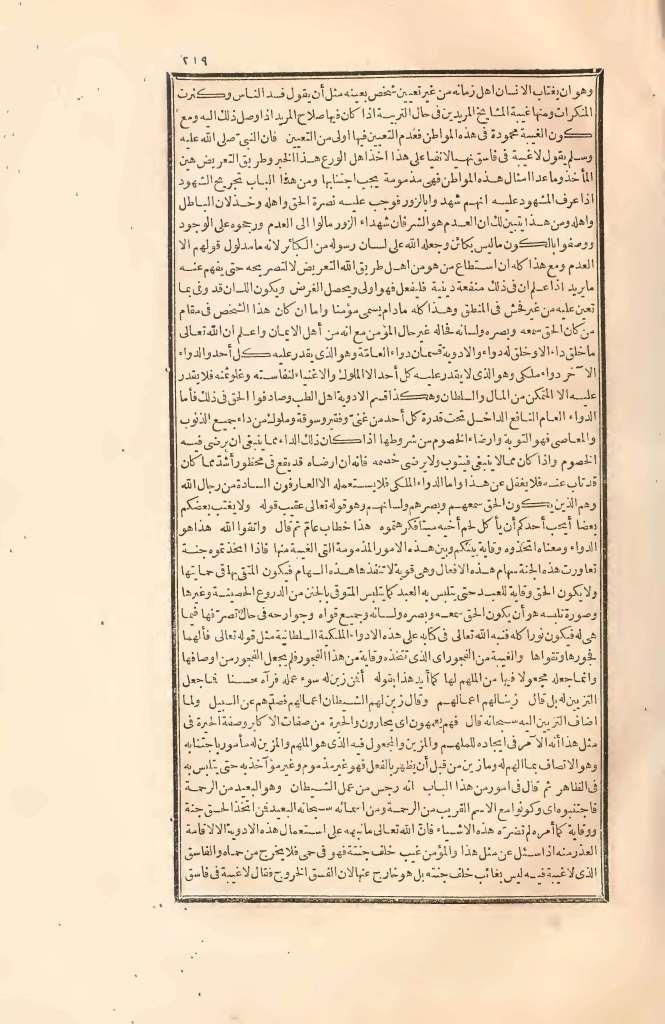 ٢١٩
وهو ان يغتاب الانسان اهل زمانه من غير تعيين شخص بعينه مثل أن يقول فسد الناس وكثرت
المنكرات ومنها غيبة المشايخ المريدين فى حال التربية اذا كان فيها صلاح المريد اذا وصل ذلك اليه ومع
كون الغيبة محمودة فى هذه المواطن فعدم التعيين فيها اولى من التعيين فان النبى صلى الله عليه
وسلم يقول لا غيبة فى فاسق نهيا لا نفيا على هذا اخذ اهل الورع هذا الخبر وطريق التعريض هين
المأخذ وما عدا امثال هذه المواطن فهى مذمومة يجب اجتنابها ومن هذا الباب تجريح الشهود
اذا عرف المشهود عليه انهم شهدوا بالزور فوجب عليه نصرة الحق واهله وخذلان الباطل
واهله ومن هذا يتبين لك ان العدم هو الشر فان شهداء الزور مالوا الى العدم ورجحوه على الوجود
ووصفوا بالكون ما ليس بكائن وجعله الله على لسان رسوله من الكبائر لانه ما مدلول قولهم الا
العدم ومع هذا كله ان استطاع من هو من اهل طريق الله التعريض لا التصريح حتى يفهم عنه
ما يريد اذا علم ان فى ذلك منفعة دينية فليفعل فهو اولى ويحصل الغرض ويكون اللسان قد وفى بما
تعين عليه من غير فحش فى المنطق وهذا كله ما دام يسمى مؤمنا واما ان كان هذا الشخص فى مقام
من كان الحق سمعه وبصره ولسانه فحاله غير حال المؤمن مع انه من أهل الايمان واعلم ان الله تعالى
ما خلق داء الا وخلق له دواء والادوية قسمان دواء العامة وهو الذى يقدر عليه كل أحد والدواء
الآخر دواء ملكى وهو الذى لا يقدر عليه كل أحد الا الملوك والاغنياء لنفاسته وغلو ثمنه فلا يقدر
عليه الا المتمكن من المال والسلطان وهكذا قسم الادوية اهل الطب وصادفوا الحق فى ذلك فأما
الدواء العام النافع الداخل تحت قدرة كل أحد من غنى وفقير وسوقة وملوك من داء جميع الذنوب
والمعاصى فهو التوبة وارضاء الخصوم من شروطها اذا كان ذلك الداء مما ينبغى ان يرضى فيه
الخصوم واذا كان مما لا ينبغى فيتوب ولا يرضى خصمه فانه ان ارضاه قد يقع فى محظور أشد مما كان
قد تاب عنه فلا يغفل عن هذا واما الدواء الملكى فلا يستعمله الا العارفون السادة من رجال الله
وهم الذين يكون الحق سمعهم وبصرهم ولسانهم وهو قوله تعالى عقيب قوله ولا يغتب بعضكم
بعضا أيحب أحدكم أن يأكل لحم أخيه ميتا فكرهتموه هذا خطاب عام ثم قال واتقوا الله هذا هو
الدواء ومعناه اتخذوه وقاية بينكم وبين هذه الامور المذمومة التى الغيبة منها فاذا اتخذتموه جنة
تعاورت هذه الجنة سهام هذه الافعال وهى قوية لا تنفذها هذه السهام فيكون المتقى بها فى حمايتها
ولا يكون الحق وقاية للعبد حتى يتلبس به العبد كما يتلبس المتوقى بالجنن من الدروع الحصينة وغيرها
وصورة تلبسه هو أن يكون الحق سمعه وبصره ولسانه وجميع قواه وجوارحه فى حال تصرفها فيما
هى له فيكون نورا كله فنبه الله تعالى فى كتابه على هذه الادواء الملكية السلطانية مثل قوله تعالى فألهما
فجورها وتقواها والغيبة من الفجور اى الذى تتخذه وقاية من هذا الفجور فلم يجعل الفجور من اوصافها
وانما جعله مجعولا فيها من الملهم لها كما أيد هذا بقوله أفمن زين له سوء عمله فرآه حسنا فما جعل
التزيين له بل قال زينا لهم اعمالهم وقال زين لهم الشيطان اعمالهم فصدهم عن السبيل ولما
اضاف التزيين اليه سبحانه قال فهم يعمهون اى يحارون والحيرة من صفات الاكابر وصفة الحيرة فى
مثل هذا أنه الآمر فى ايجاده للملهم والمزين والمجعول فيه الذى هو الملهم والمزين له مأمور باجتنابه
وهو الاتصاف بما الهم له وما زين من قبل أن يظهر بالفعل فهو غير مذموم وغير مؤاخذ به حتى يتلبس به
فى الظاهر ثم قال فى امور من هذا الباب انه رجس من عمل الشيطان وهو البعيد من الرحمة
فاجتنبوه اى وكونوا مع الاسم القريب من الرحمة ومن اسمائه سبحانه البعيد فمن اتخذ الحق جنة
ووقاية كما أمره لم تضره هذه الاشياء فان الله تعالى ما نبهه على استعمال هذه الادوية الا لاقامة
العذر منه اذا سئل عن مثل هذا والمؤمن غيب خلف جنته فهو فى حمى فلا يخرج من حماه والفاسق
الذى لا غيبة فيه ليس بغائب خلف جنته بل هو خارج عنها لان الفسق الخروج فقال لا غيبة فى فاسق